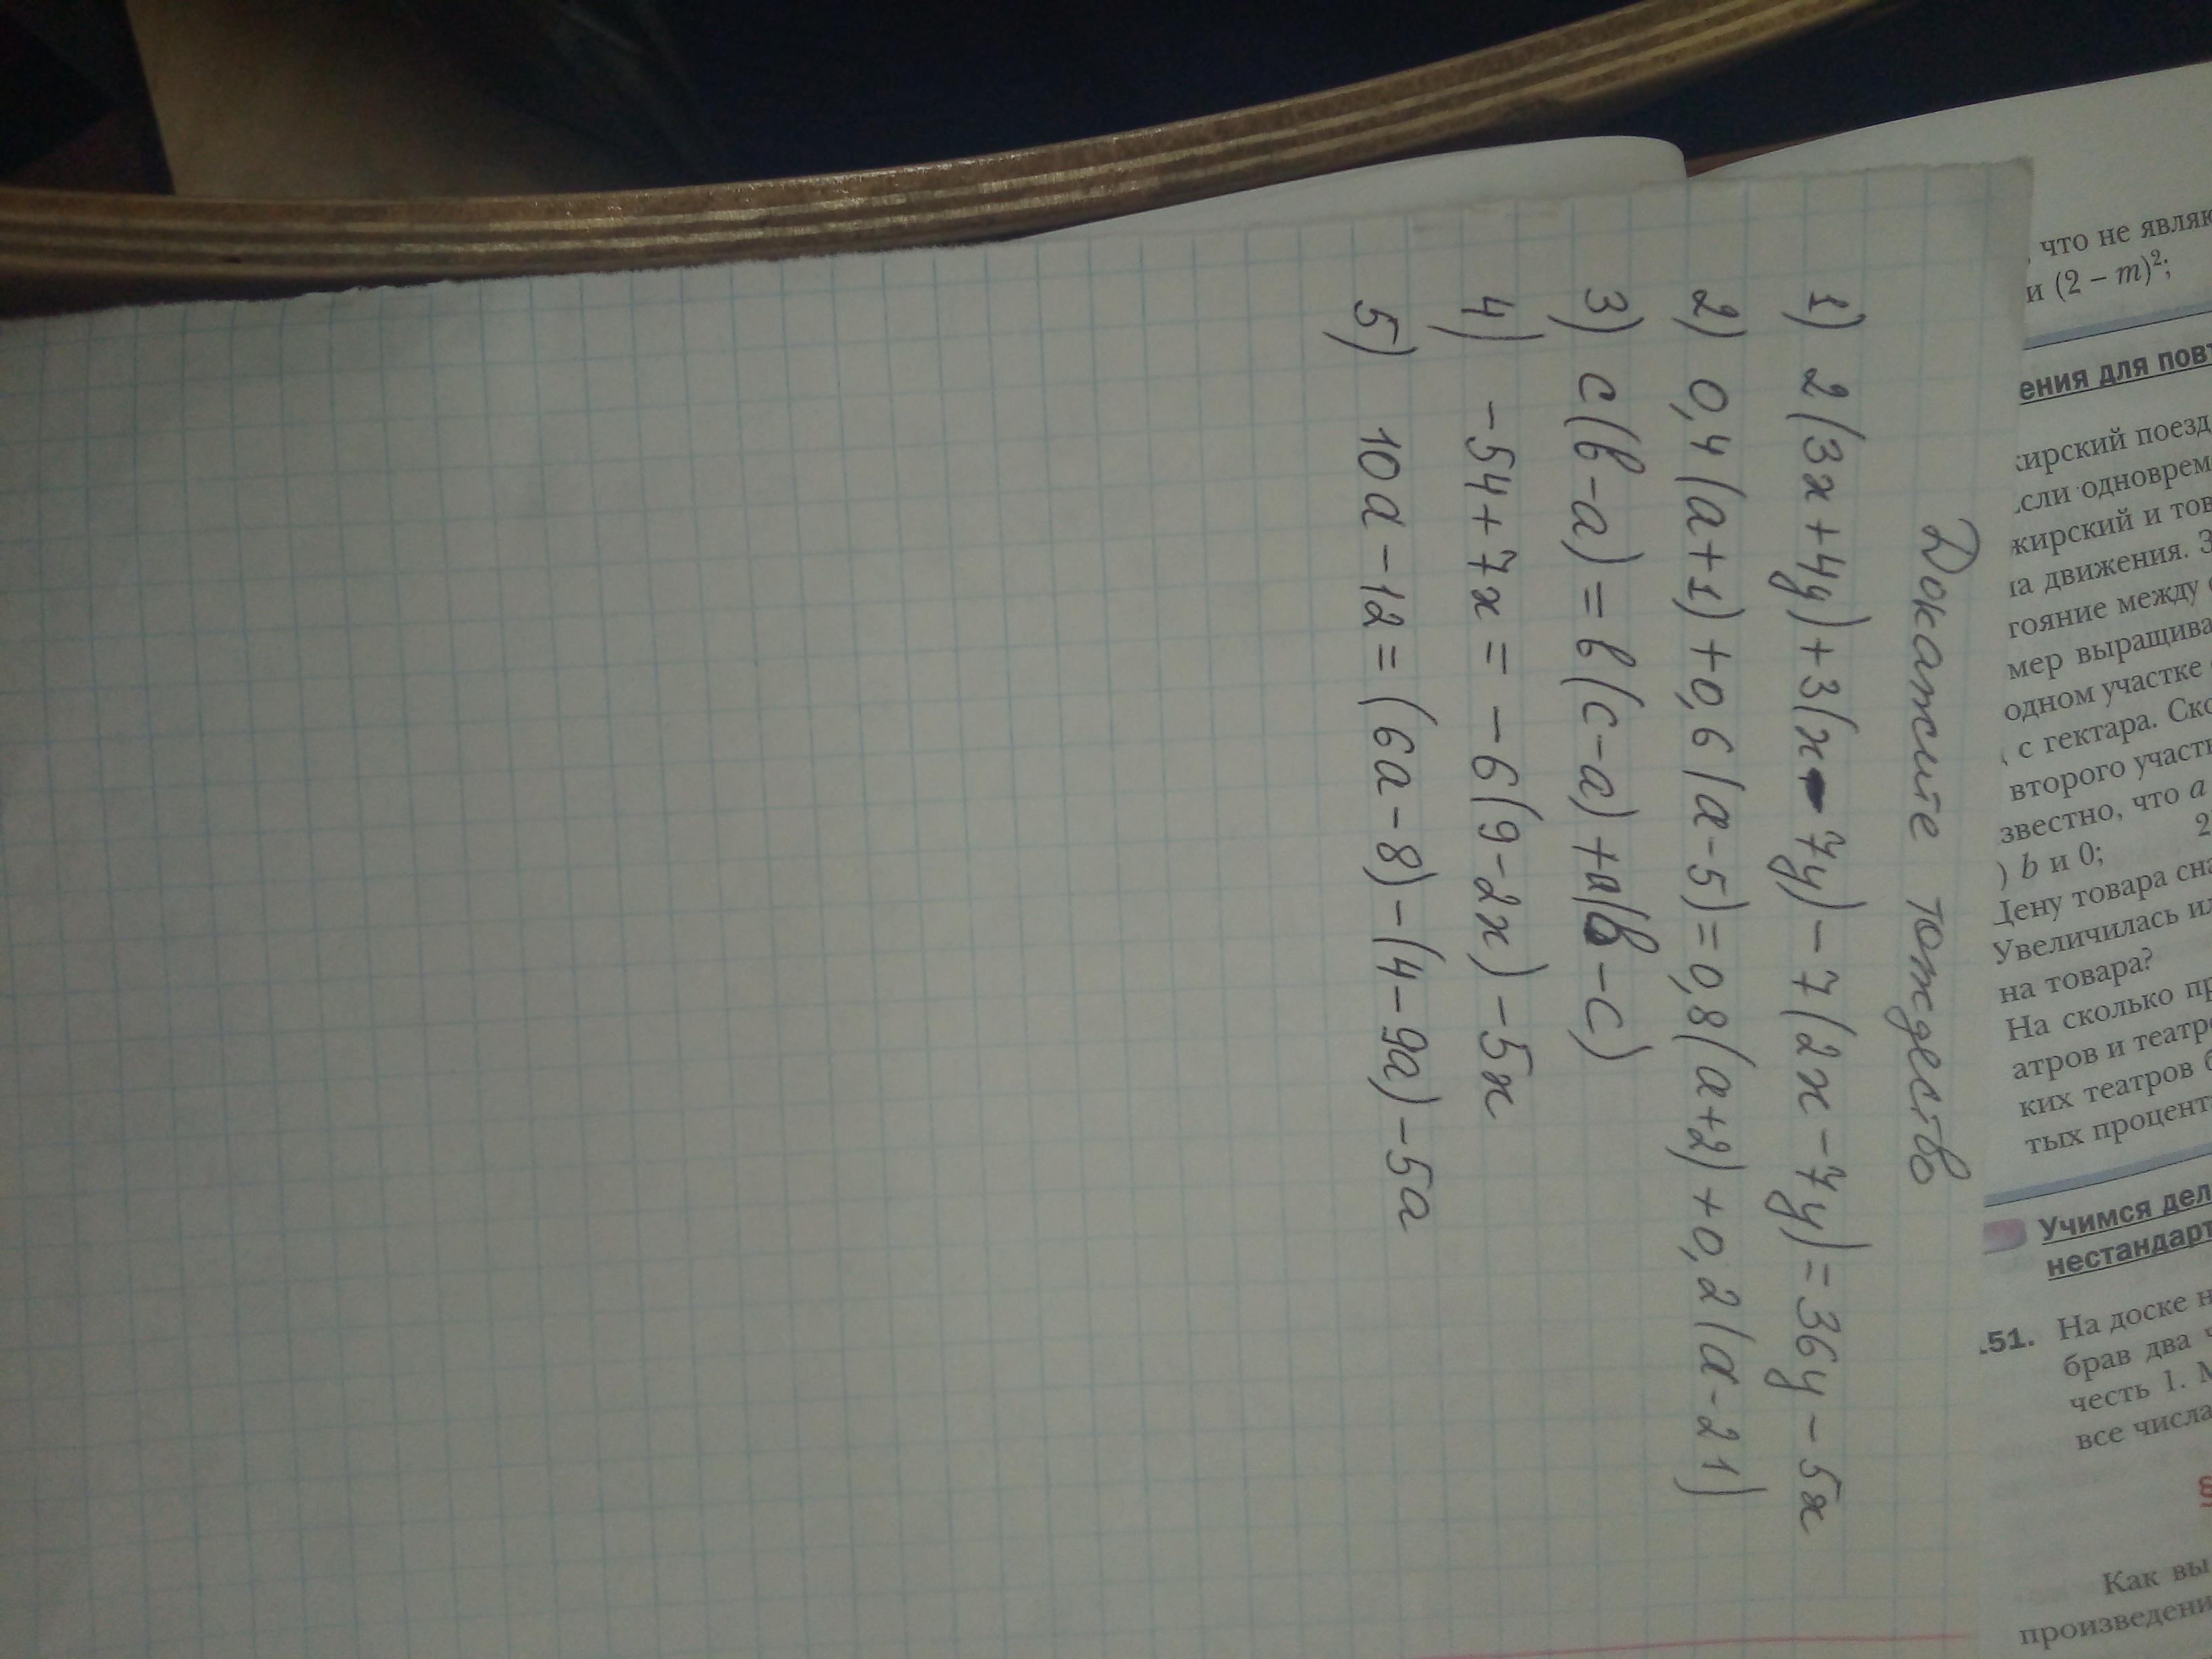 Докажите тождество
1) 2(3x+4y)+3(x-7y)-7(2x-7y)=36y-5x
2) 0,4(a+1)+0,6(a-5)=0,8(a+2)+0,2(a-21)
3) c(b-a)=b(c-a)+a(b-c)
4) -54+7x=-6(9-2x)-5x
5) 10a-12=(6a-8)-(4-9a)-5a
что не явля
и (2 – m)²;
ения для повт
поезд
сли одновре
и тов
движения. З
между
мер выращива
одном участке
с гектара. Ско
второго участ
звестно, что a
2
) b и 0;
Цену товара
Увеличилась ил
на товара?
На сколько пр
и
ких театров
тых процент
Учимся дел
нестандарт
.51. На доске н
брав два ч
честь 1. М
все числа
§
Как вы
произведени